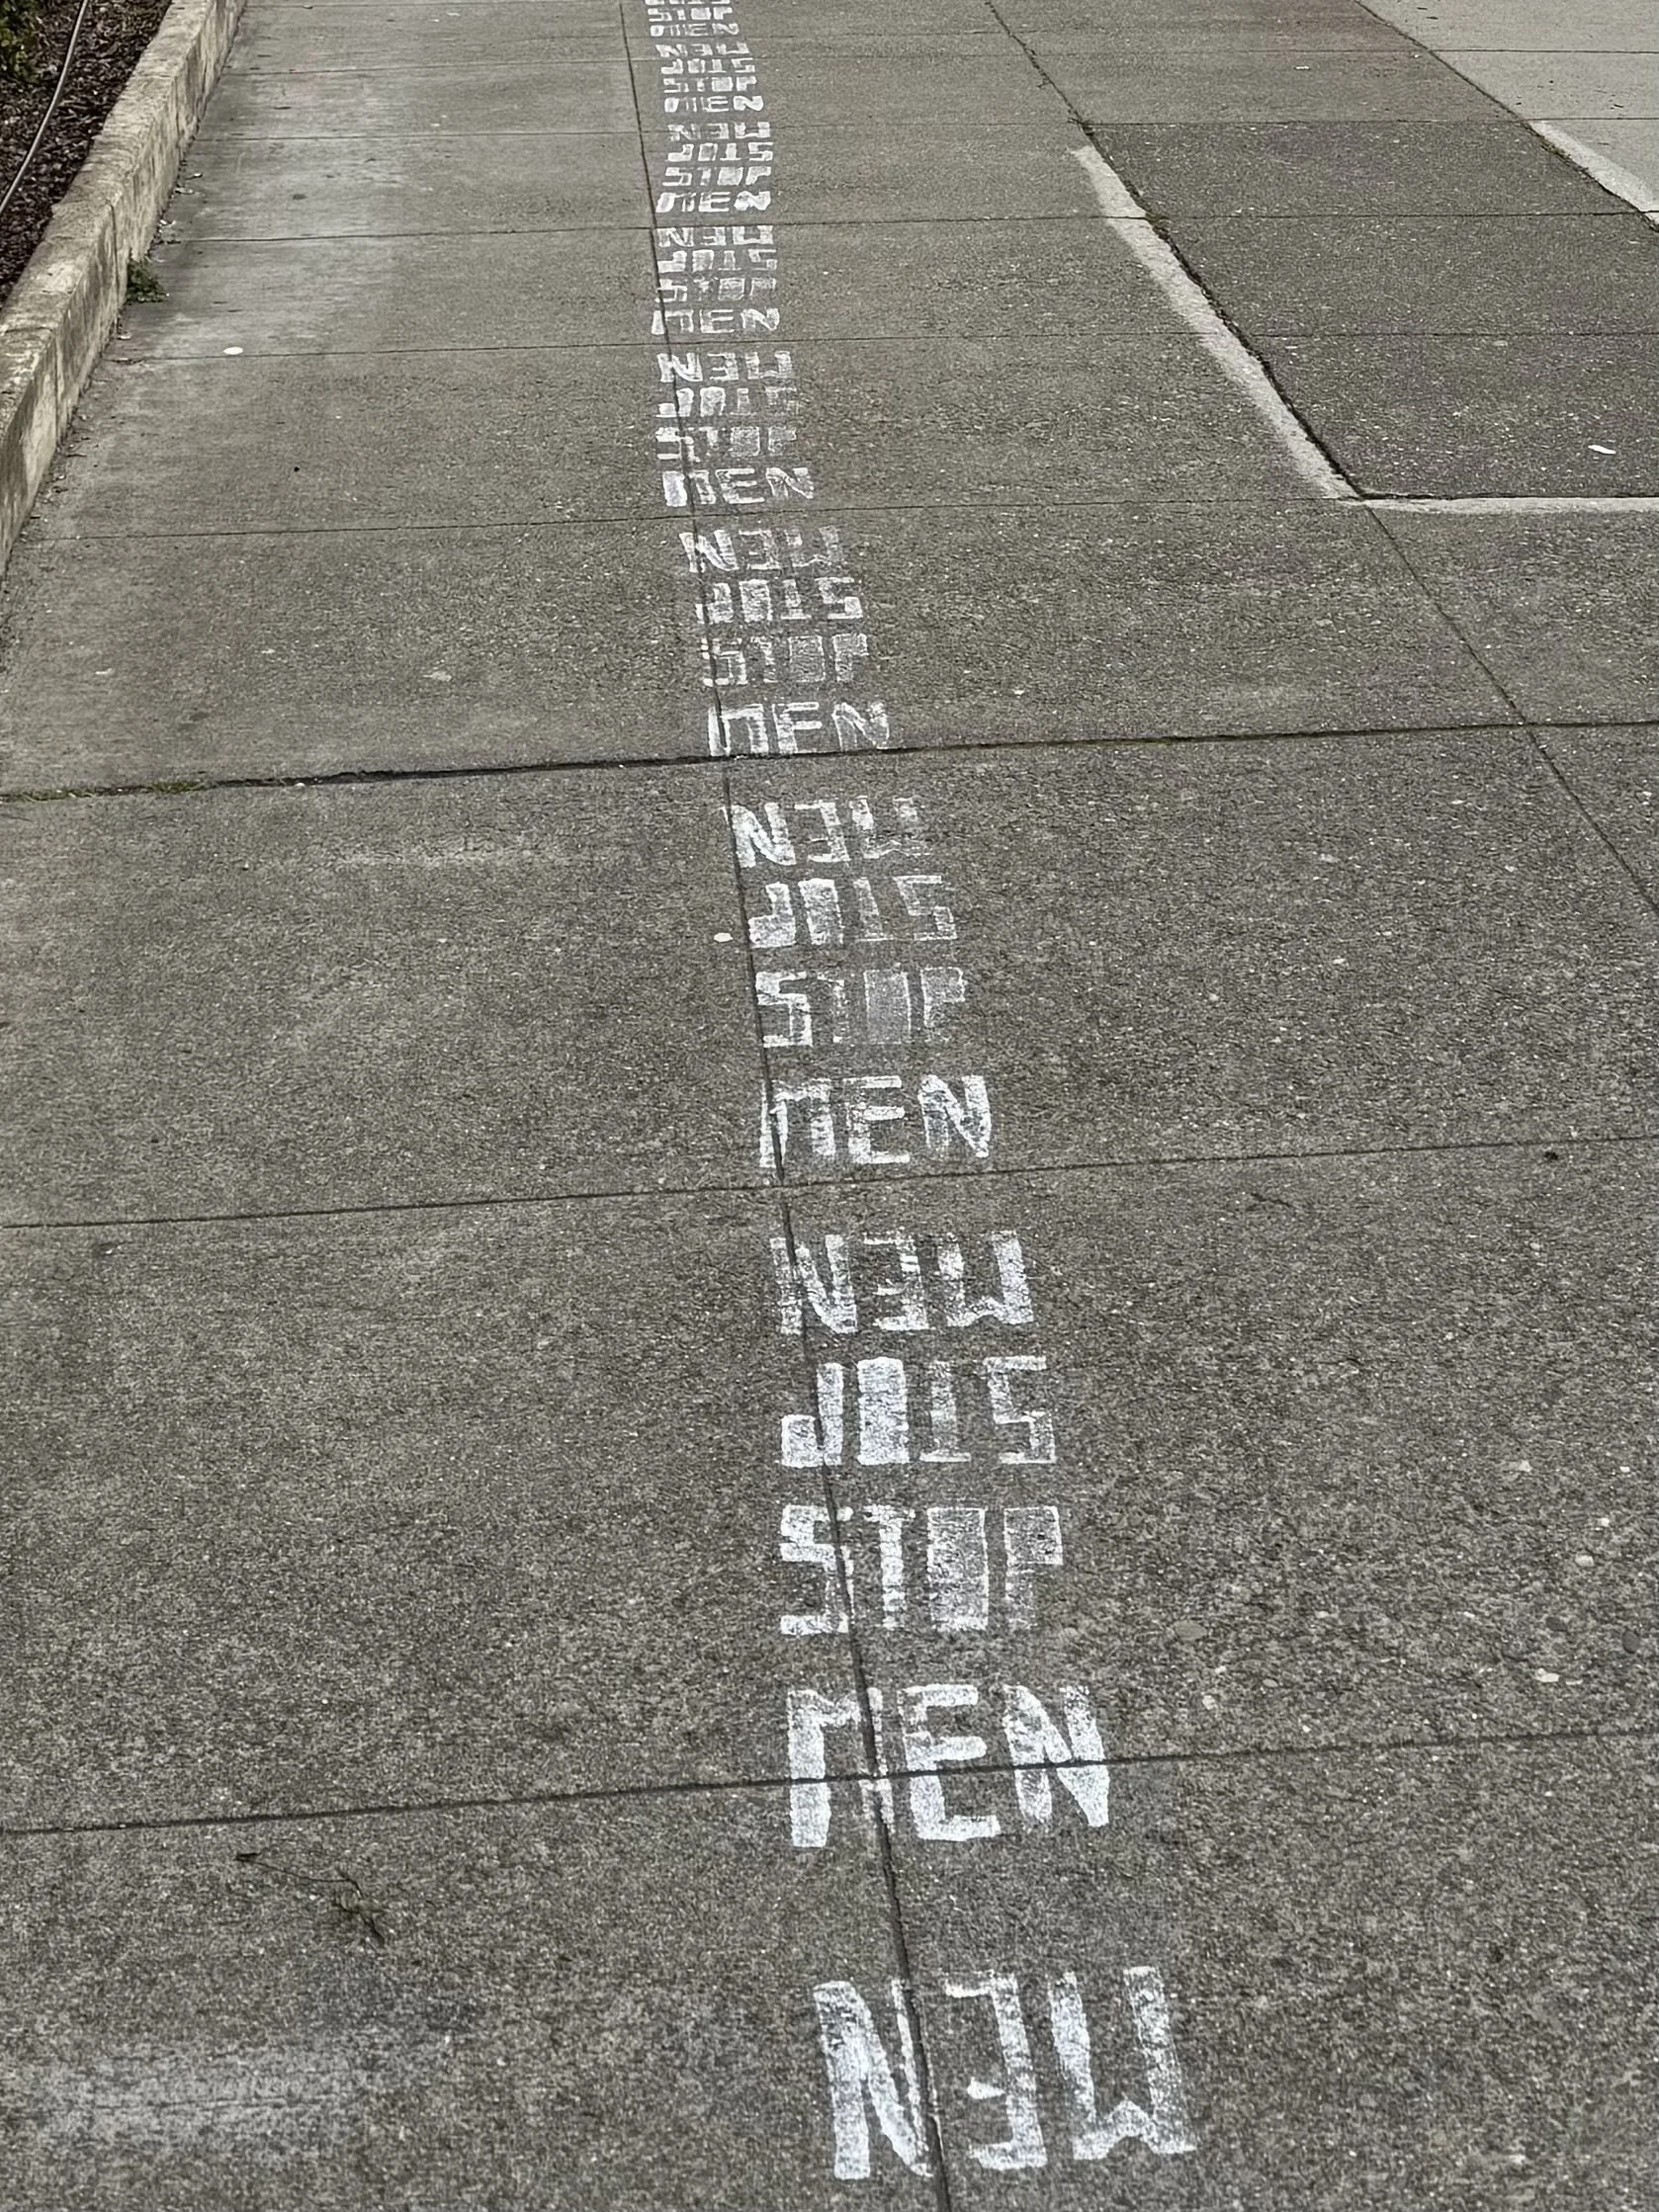 STOP
MEN
MEN
STOP
STOP
MEN
MEN
STOP
STOP
MEN
MEN
STOP
STOP
MEN
MEN
STOP
STOP
MEN
MEN
STOP
STOP
MEN
MEN
STOP
STOP
MEN
MEN
STOP
STOP
MEN
MEN